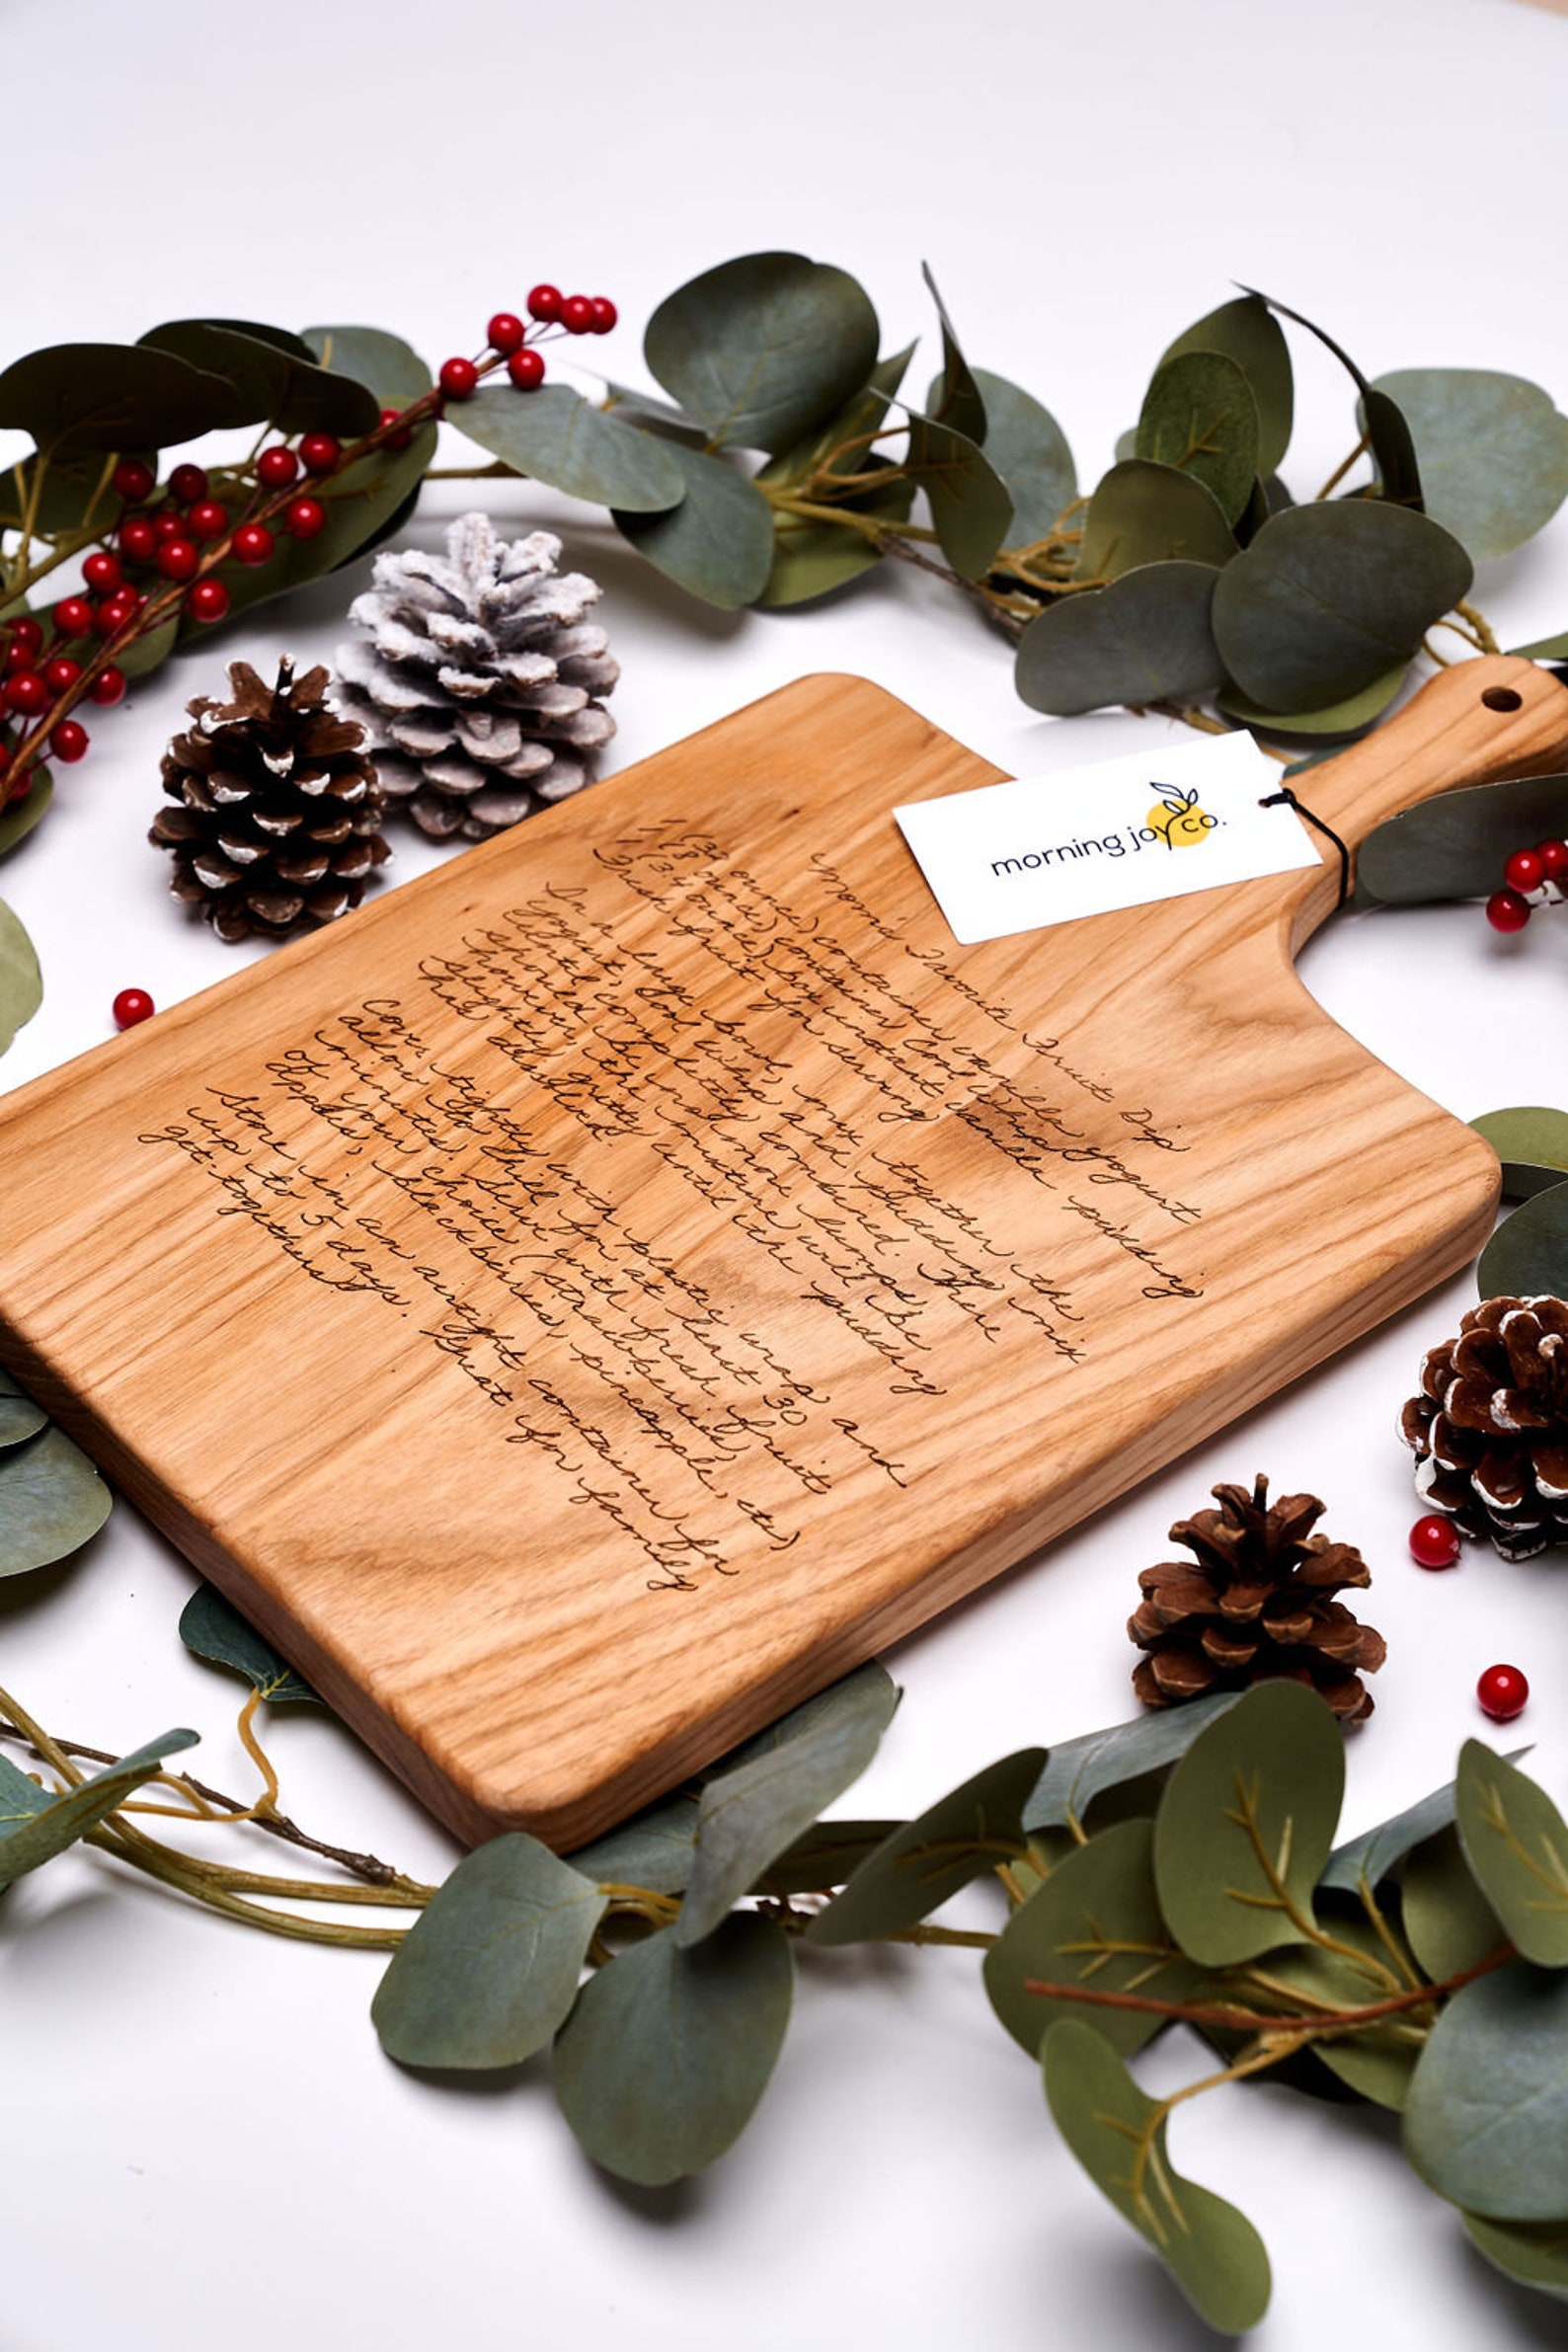 Mom's Favorite Fruit Dip
1 (32 ounce) container vanilla yogurt
1 (8 ounce) container cool whip
1 (3.4 ounce) box instant vanilla pudding
Fresh fruit for serving
In a large bowl, mix together the
yogurt, cool whip and pudding mix
until completely combined. There
should be no more lumps;
however, the mixture will be
slightly gritty until the pudding
has dissolved.
Cover tightly with plastic wrap and
allow to chill for at least 30
minutes. Serve with fresh fruit
of your choice (strawberries,
apples, blackberries, pineapple, etc)
Store in an airtight container for
up to 5 days. Great for family
get-togethers!
morning joy co.